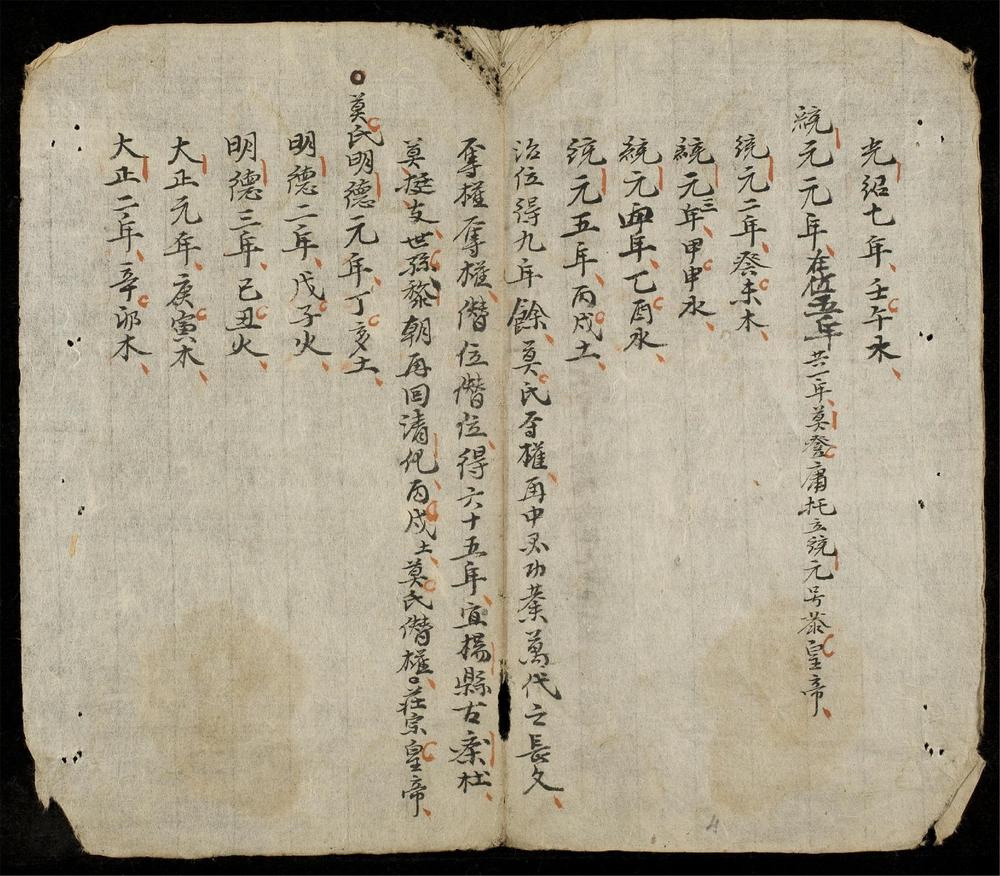 光紹七年壬午木
統元元年在位五年共一年莫登庸托立統元号恭皇帝
統元二年癸未木
統元三年甲申水
統元四年乙酉水
統元五年丙戌土
治位得九年餘莫氏夺權再中功業萬代之長久
奪權奪權僭位僭位得六十五年宜楊縣古齋社
莫挺支世孫黎朝再回清化丙戌土莫氏僭權莊宗皇帝
莫氏明德元年丁亥土
明德二年戊子火
明德三年己丑火
大正元年庚寅木
大正二年辛卯木
4